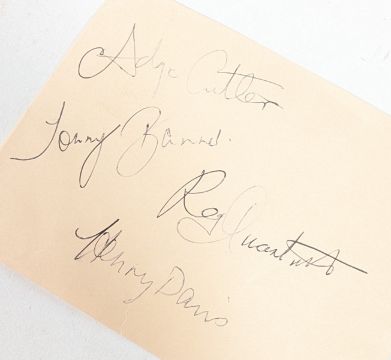 Adge Cutler
Tommy Banner
Reg Quantrill
Henry Davis